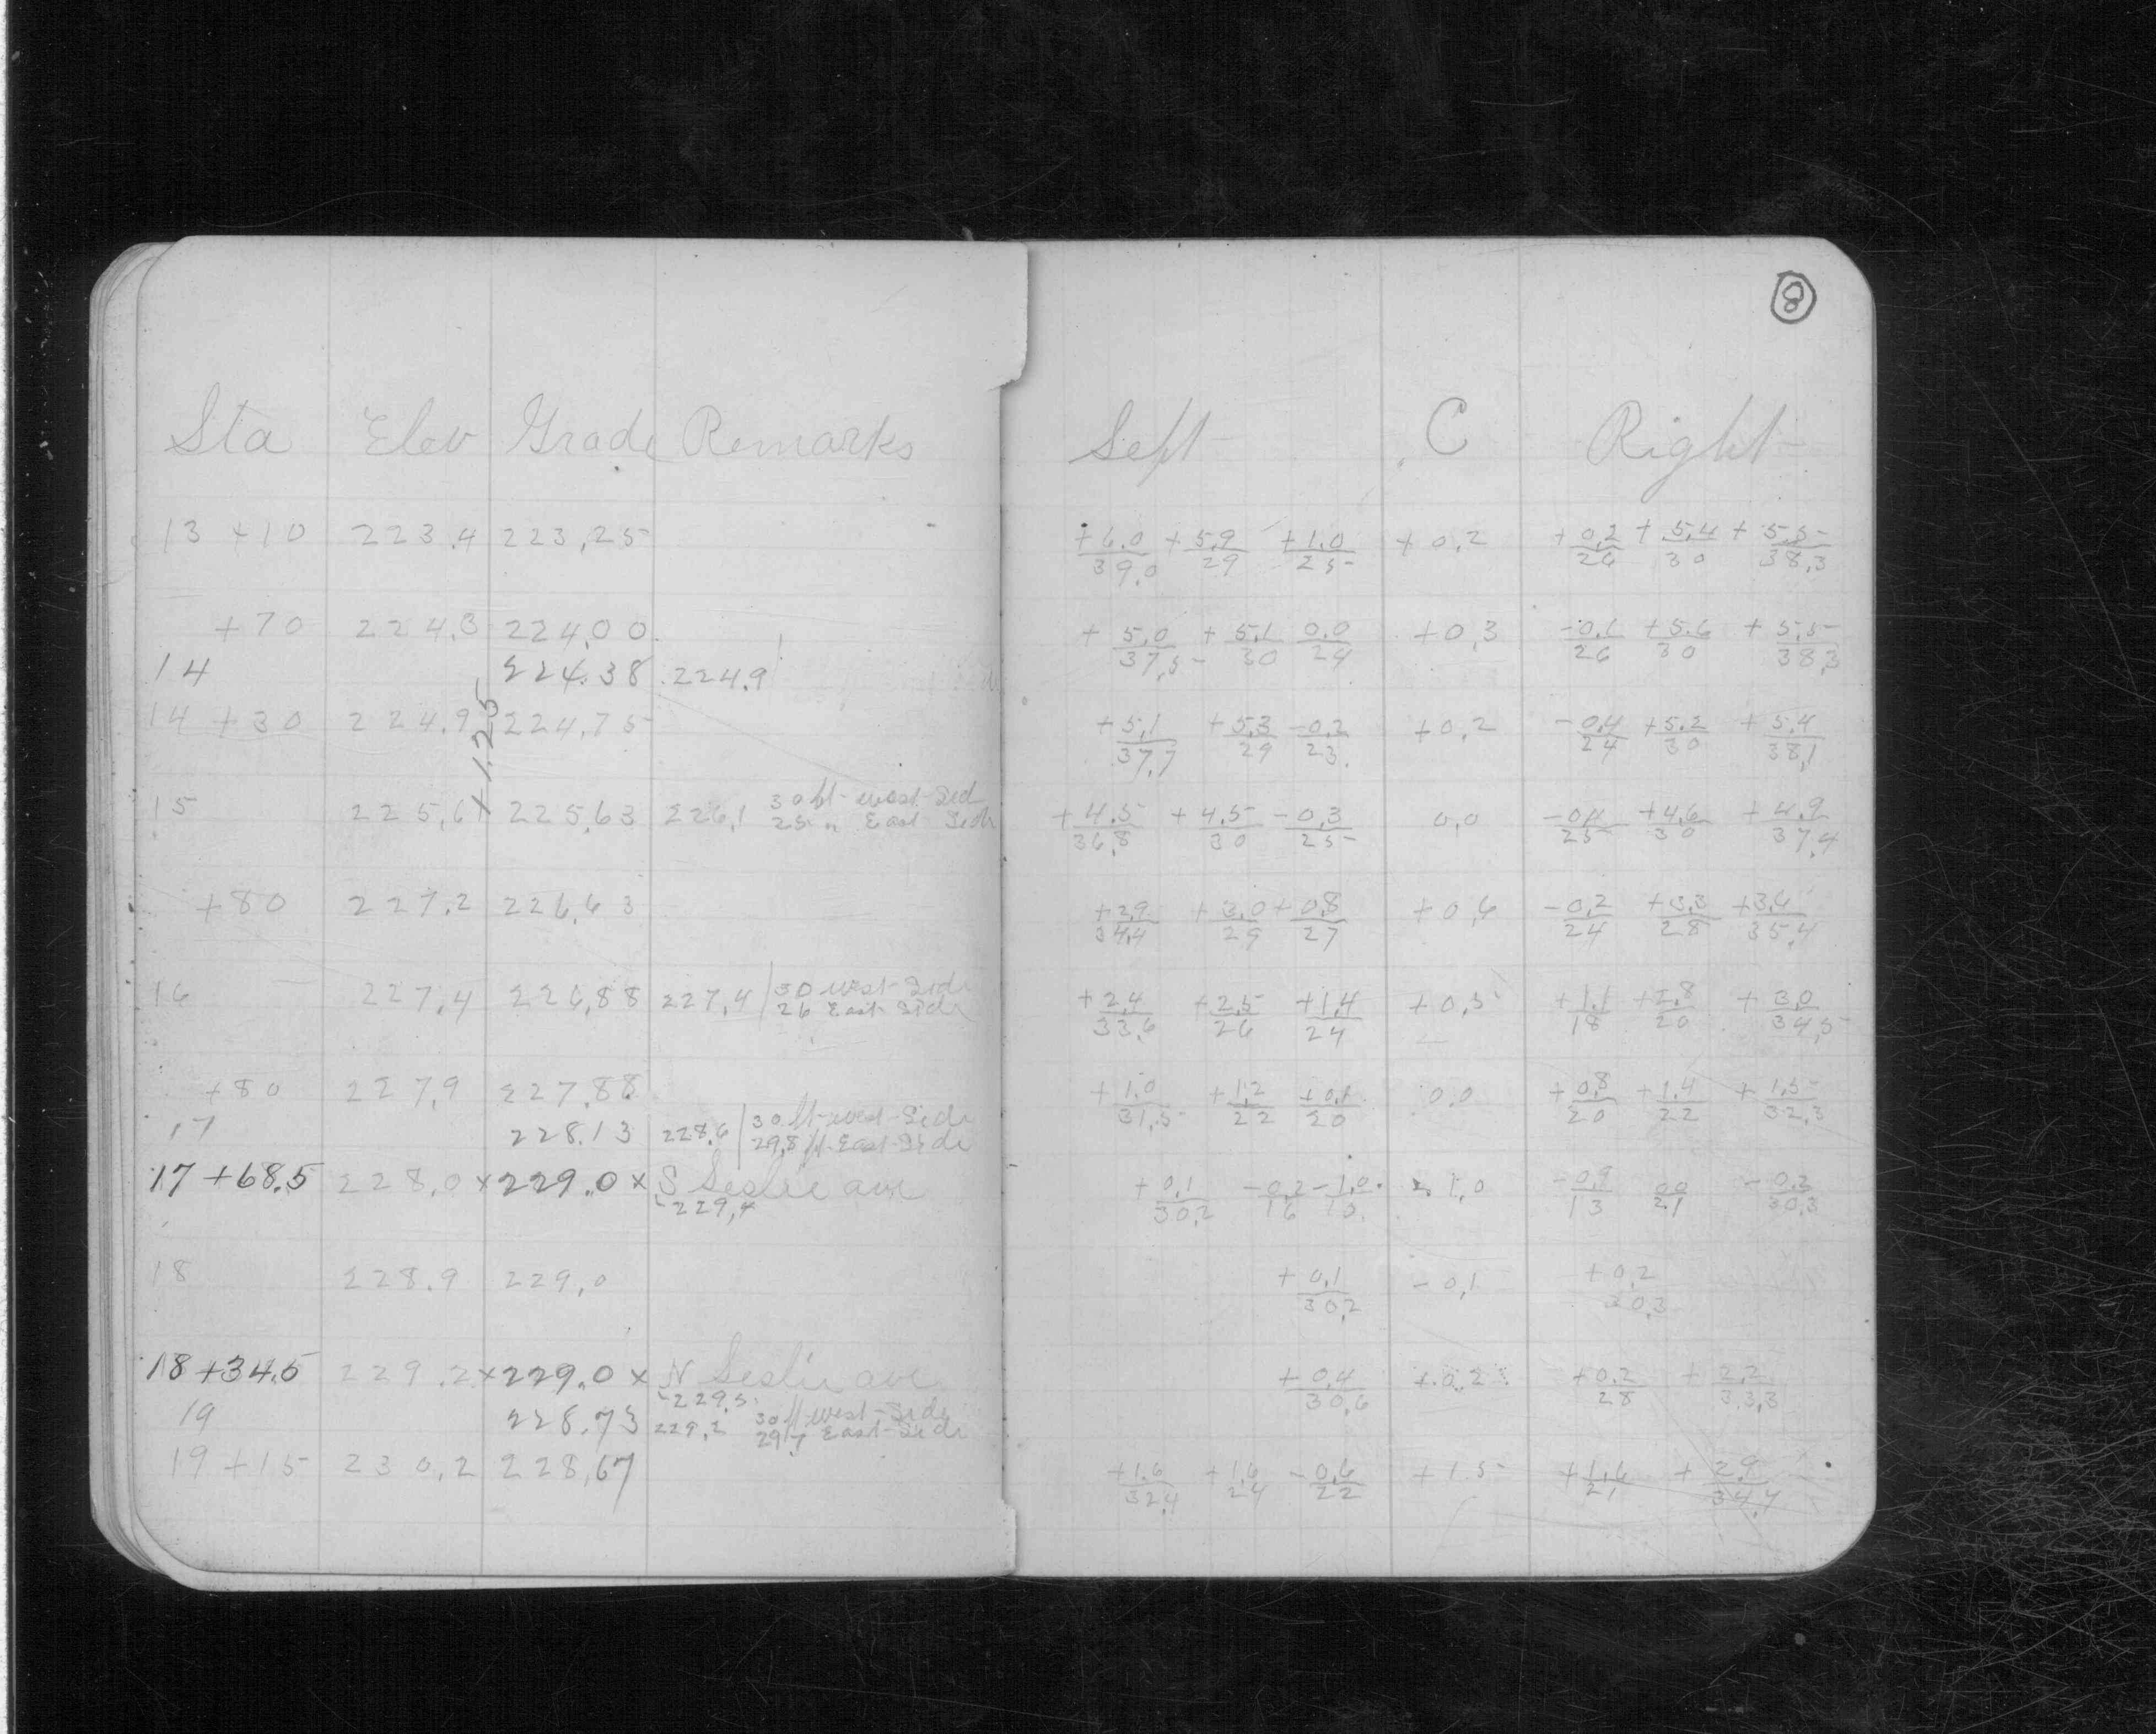 8
Sta Elev Grade Remarks Left C Right
13 +10 223.4 223,25 +6.0/39.0 +5.9/29 +1.0/25 +0.2 +0.2/26 +5.4/30 +5.5/38.3
+70 224.3 224.00 +5.0/37.5 +5.1/30 0.0/24 +0.3 -0.1/26 +5.6/30 +5.5/38.3
14 224.38 224.9
+1.25
14 +30 224.9 224,75 +5.1/37.7 +5.3/29 -0.2/23. +0.2 -0.4/24 +5.2/30 +5.4/38.1
15 225,61 225,63 226,1 30 ft west side +4.5/36.8 +4.5/30 -0.3/25 0.0 /25 +4.6/30 +4.9/37.4
25 " East Side
+80 227.2 226,63 +2.9/34.4 +3.0/29 +0.8/27 +0.6 -0.2/24 +3.3/28 +3.6/35.4
16 227,4 226,88 227,4 30 west Side +2.4/33.6 +2.5/26 +1.4/24 +0.5 +1.1/18 +2.8/20 +3.0/34.5
26 East Side
+80 227,9 227.88 +1.0/31.5 +1.2/22 +0.1/20 0.0 +0.8/20 +1.4/22 +1.5/32.3
17 228.13 228.6 30 ft west Side
29.8 ft East Side
17 +68.5 228.0 x 229.0 x S Leslie ave +0.1/30.2 -0.2/16 -1.0/10. 1.0 -0.9/13 00/21 -0.2/30.3
229,4
18 228.9 229,0 +0.1/30.2 -0.1 +0.2/30.3
18 +34.5 229.2 x 229.0 x N Leslie ave +0.4/30.6 +0.2 +0.2/28 +2.2/33.3
229.5
19 228.73 229,2 30 ft west Side
29.7 East Side
19 +15 230,2 228,67 +1.6/32.4 +1.6/24 -0.6/22 +1.5 +1.6/21 +2.9/34.4